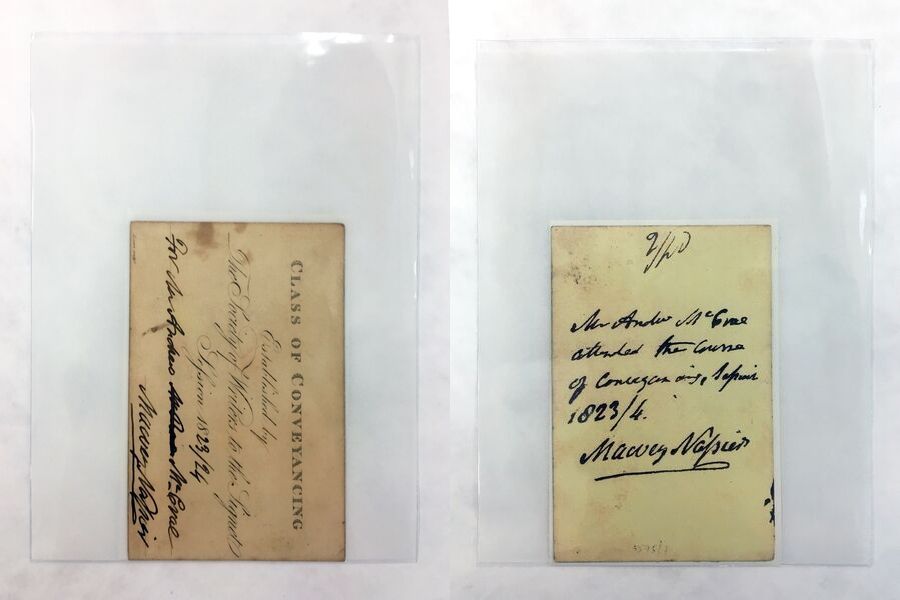 CLASS OF CONVEYANCING
Established by
The Society of Writers to the Signet
Session 1823/24
For Mr Andrew McCrae
Macvey Napier
Mr Andw McCrae
attended the Course
of Conveyancing, Session
1823/4.
Macvey Napier